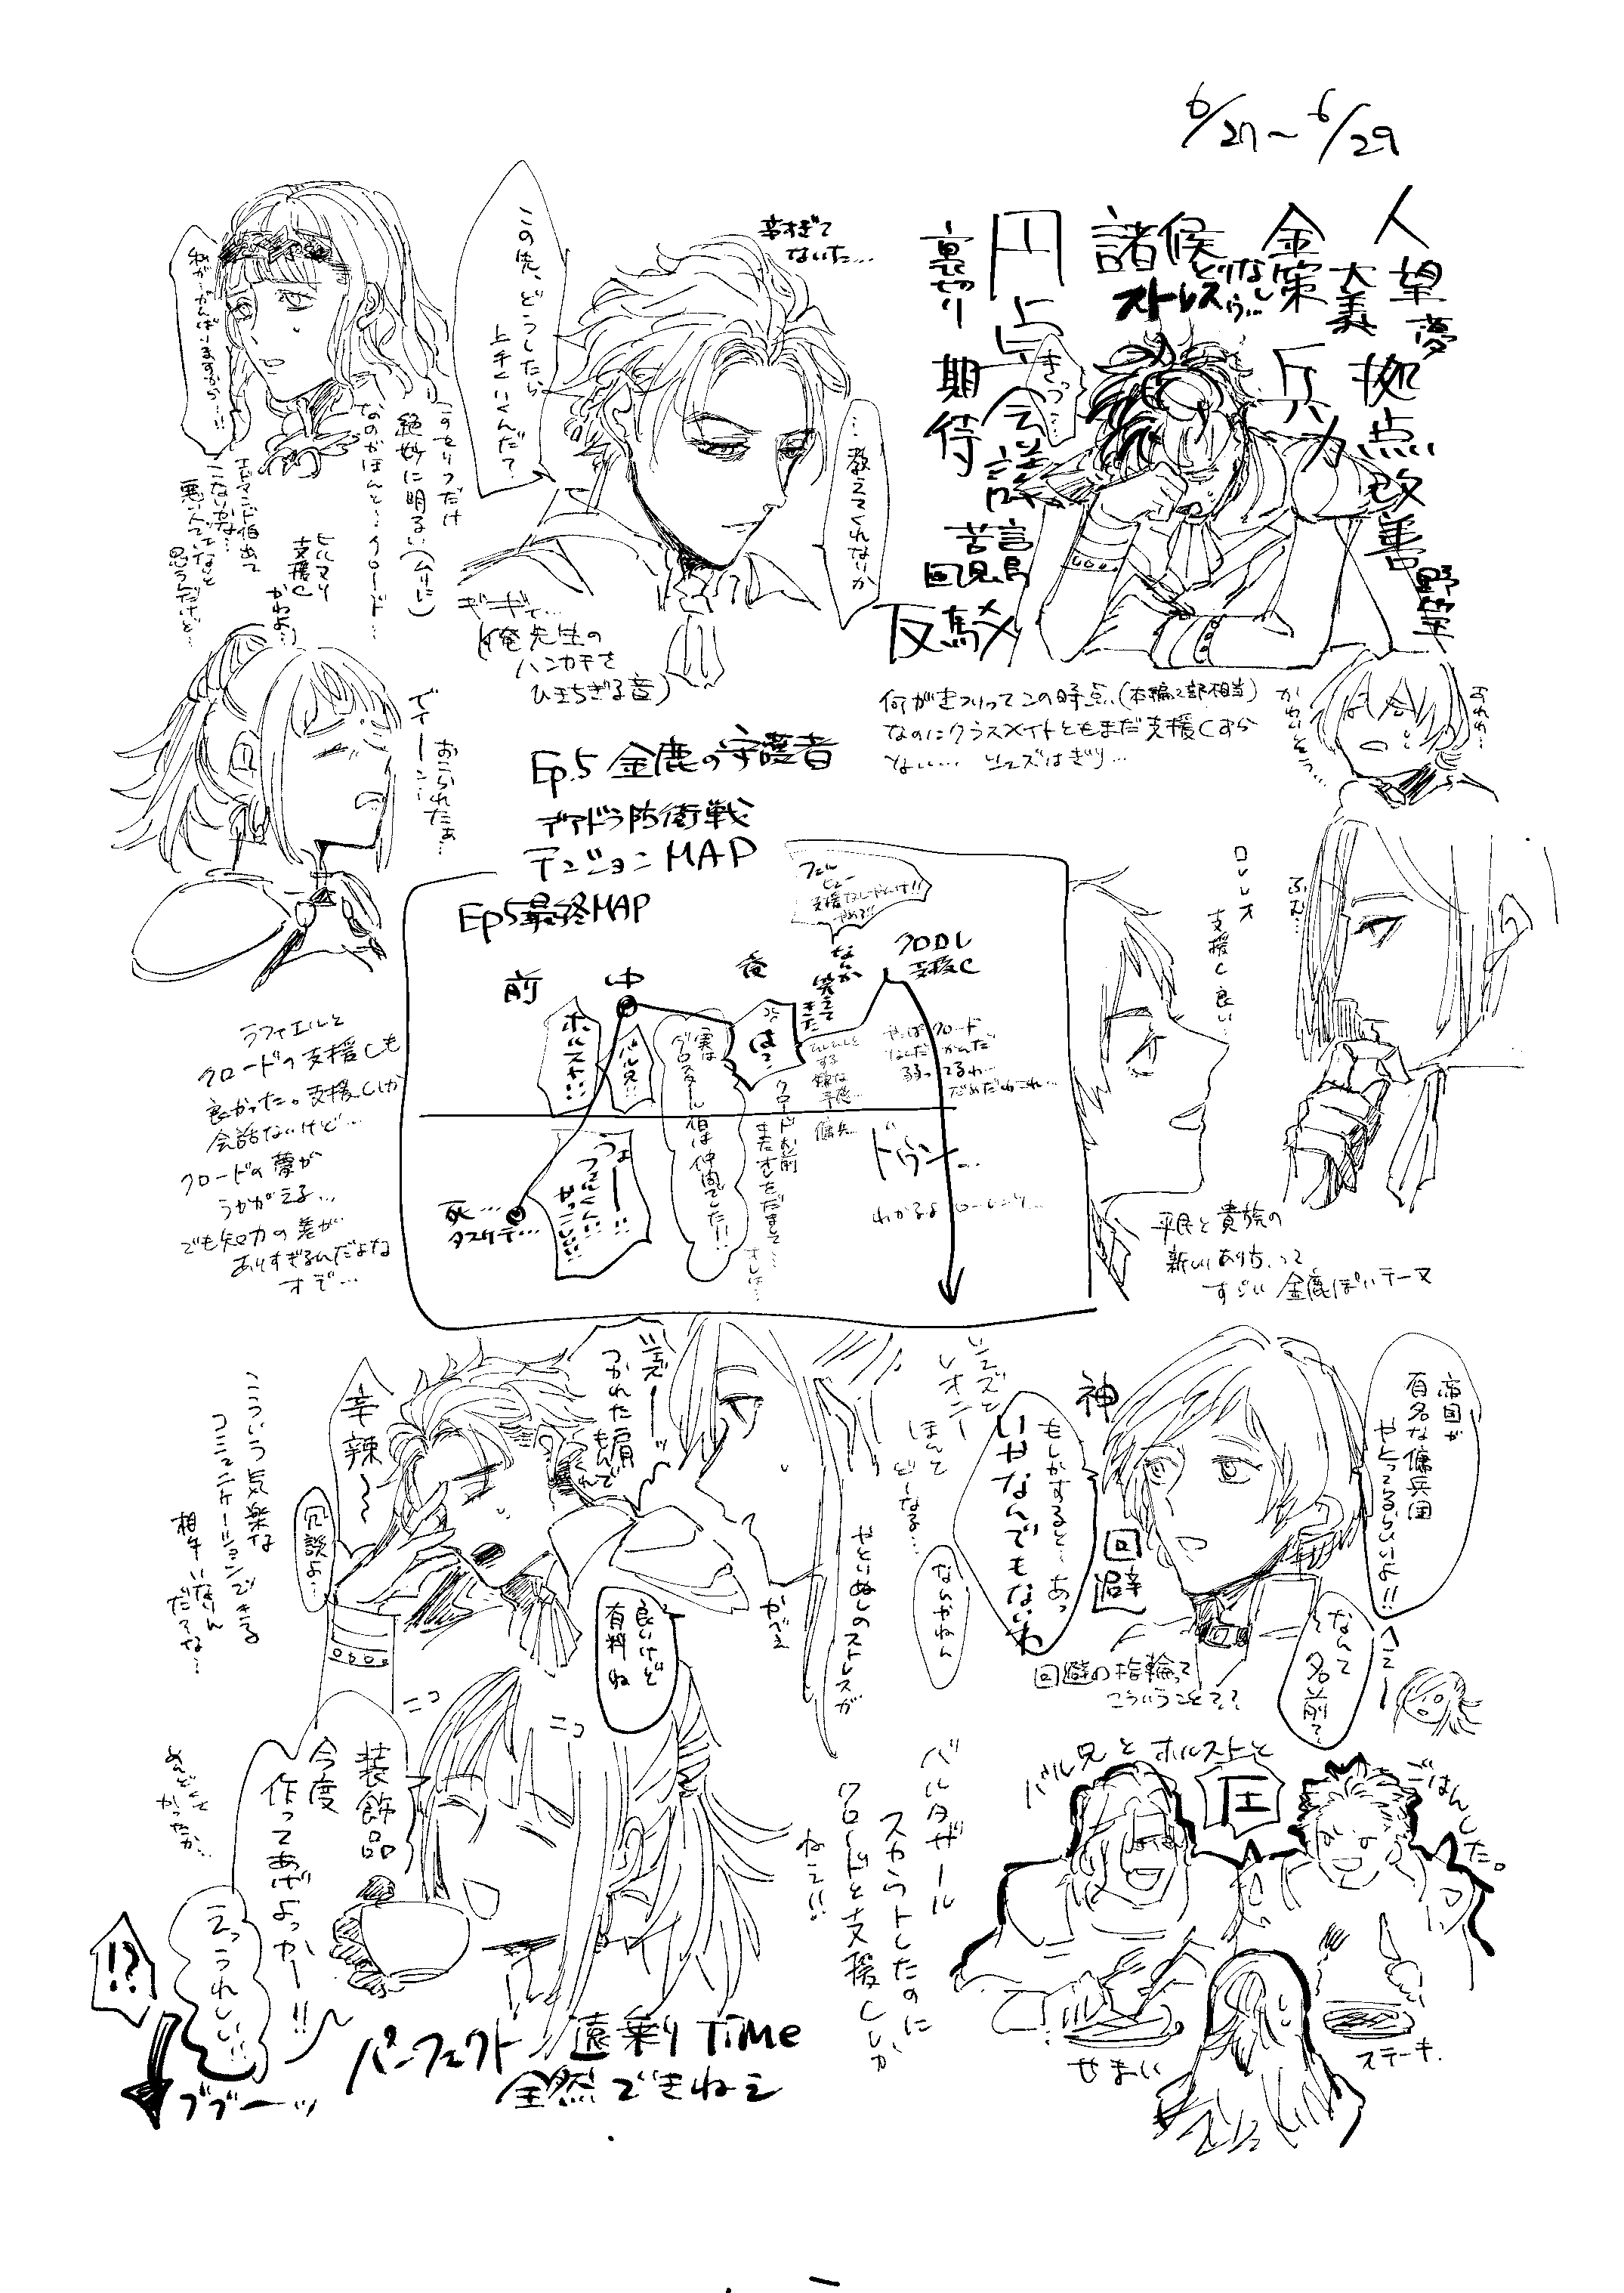 6/27〜6/29
人望
夢
大義
金策
諸侯
とりなし
ストレス
円上会議
裏切り
期待
兵力
拠点改善
野望
きっつ…
苦言
反駁
辛すぎて
ないた…
この先、どうしたら
上手くいくんだ？
…教えてくれないか
私が…がんばりますから…!!
このセリフだけ
絶妙に明るい(ムリに)
なのがほんと…クロード…
ヒルマリ
支援C
かわよ…
エドマンド伯あて
にないかな…
悪い人でないと
思うんだけど…
ギギギ…
(俺先生の
ハンカチを
ひきちぎる音)
何がきついってこの時点(本編2部相当)
なのにクラスメイトともまだ支援Cすら
ない… シェズはぎり…
かわいそう…
おこられたぁ…
Ep.5 金鹿の守護者
デアドラ防衛戦
テンションMAP
Ep5最終MAP
前
中
後
ホルスト!!
バル兄!!
実は
グロスタール伯は仲間でした!!
は?
なんか
笑えて
きた
クロロレ
支援C
やっぱクロード
なんだかんだ
弱ってるわ…
だめだわこれ…
傭兵…
クロードお前
またオレをだまして…
オレは…
ドゥン…
わかるよローレンツ…
死…
タスケテ…
うぉーー!!
つえぇ
かっこいい!!
ロレレオ
支援C良い…
ふむ…
平民と貴族の
新しいあり方、って
すごい金鹿ぽいテーマ
ラフィエルと
クロードの支援Cも
良かった。支援Cしか
会話ないけど…
クロードの夢が
うかがえる…
でも知力の差が
ありすぎるんだよな
オデ…
シェズーーッ
つかれた肩
もんで
辛辣〜
冗談よ…
こういう気楽な
コミュニケーションできる
相手いなん
だろな…
良いけど
有料ね
やといぬしのストレスが
やべえ
シェズと
レオニー
ほんと
どーなる…
なんかねん
神
回避
もしかすると…あっ
いやなんでもないわ
帝国が
有名な傭兵団
やとってるらしいよ!!
へえー
なんて
名前？
回避の指輪って
こういうこと??
ニコ
ニコ
装飾品
今度
作ってあげよっかー!!
えっうれしい…
めんどくさ
かったか…
!?
ブブーッ
パーフェクト遠乗りTiMe
全然できねえ
バルタザール
スカウトしたのに
クロードと支援Cしか
ねえ!!
バル兄とホルストと
ごはんした。
圧
せまい
ステーキ